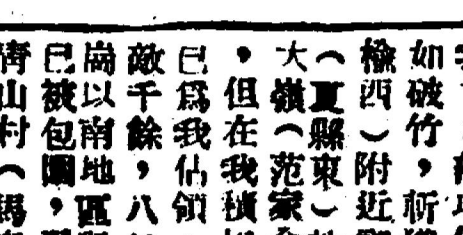 如破竹，斬獲
檢西）附近
（夏縣東）
大嶺（范家
，但在我積
已爲我佔領
敵千餘，八
崗以南地區
已被包圍，
靑山村（馬